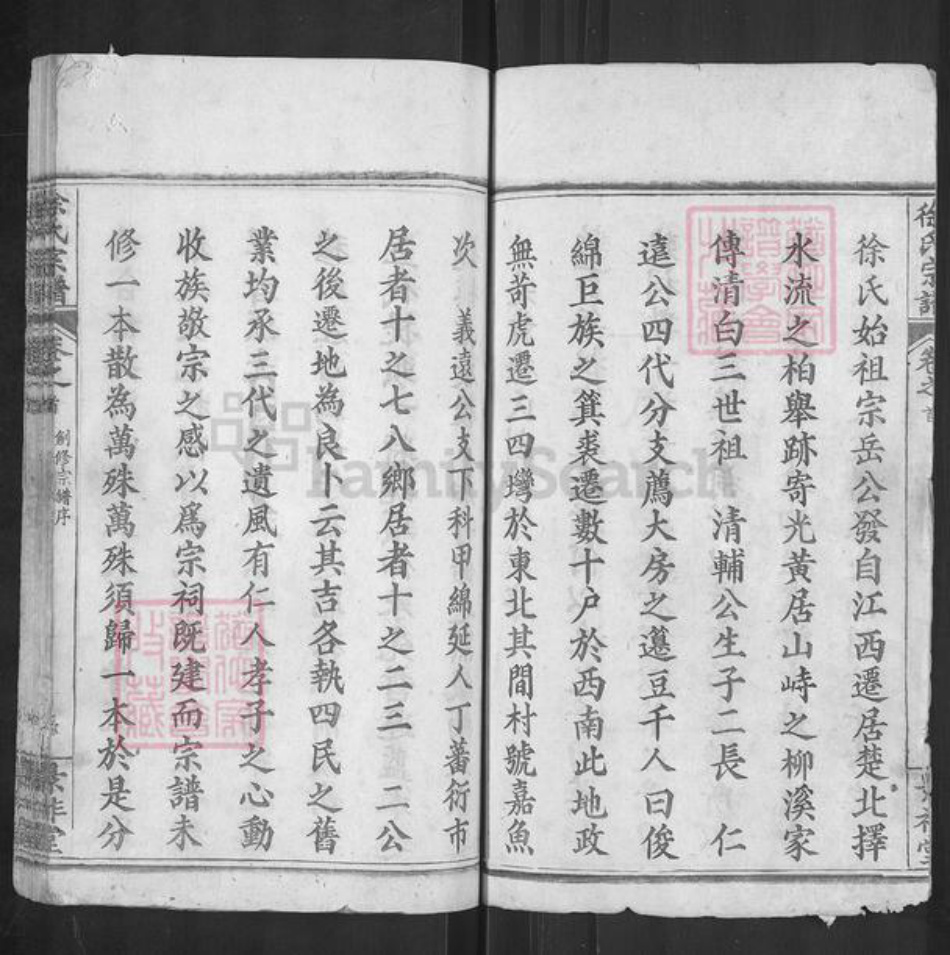 徐氏宗譜
卷之首
徐氏始祖宗岳公發自江西遷居楚北擇
水流之柏舉跡寄光黃居山峙之柳溪家
傳清白三世祖 清輔公生子二長 仁
遠公四代分支薦大房之籩豆千人曰俊
綿巨族之箕裘遷數十户於西南此地政
無苛虎遷三四灣於東北其間村號嘉魚
次 義遠公支下科甲綿延人丁蕃衍市
居者十之七八鄉居者十之二三 二公
之後遷地為良卜云其吉各執四民之舊
業均承三代之遺風有仁人孝子之心動
收族敬宗之感以爲宗祠既建而宗譜未
修一本散為萬殊萬殊須歸一本於是分
徐氏宗譜
卷之首
創修宗譜序
FamilySearch